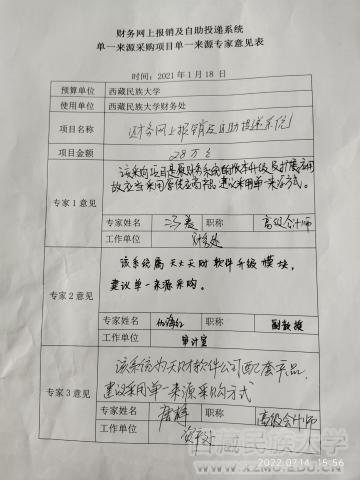 财务网上报销及自助投递系统
单一来源采购项目单一来源专家意见表
时间：2021年1月18日
预算单位 西藏民族大学
使用单位 西藏民族大学财务处
项目名称 财务网上报销及自助投递系统
项目金额 28万元
专家1意见
该采购项目是原财务系统的版本升级及扩展应用
故应当采用原供应商产品，建议采用单一来源方式。
专家姓名 职称 高级会计师
工作单位 财务处
专家2意见
该系统属天大天财软件升级模块，
建议单一来源采购。
专家姓名 职称 副教授
工作单位 审计室
专家3意见
该系统为天财软件公司配套产品
建议采用单一来源采购方式
专家姓名 职称 高级会计师
工作单位
西藏民族大学
WWW.XZMU.EDU.CN
2022.07.14 15:56